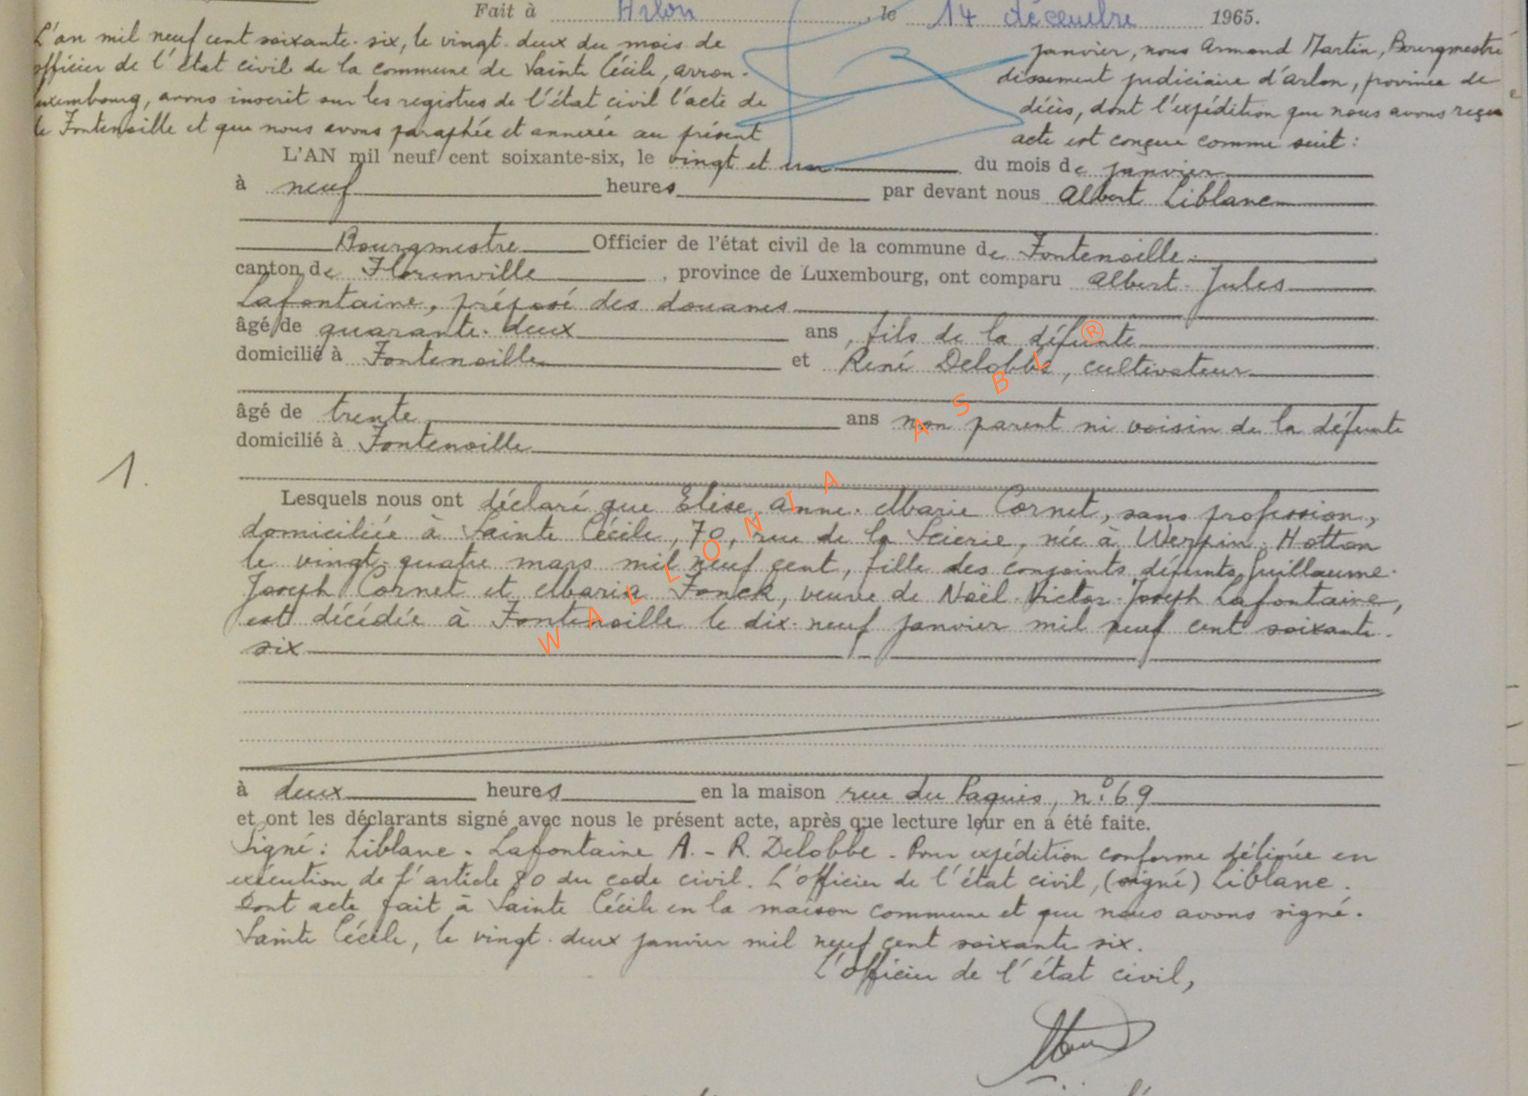 Fait à Arlon, le 14 décembre 1965.
L'an mil neuf cent soixante-six, le vingt-deux du mois de janvier, nous Armand Martin, Bourgmestre
officier de l'état civil de la commune de Sainte Cécile, arrondissement judiciaire d'Arlon, province de
Luxembourg, avons inscrit sur les registres de l'état civil l'acte de décès, dont l'expédition que nous avons reçue
de Fontenoille et que nous avons paraphée et annexée au présent acte est conçue comme suit :
L'AN mil neuf cent soixante-six, le vingt et un du mois de janvier
à neuf heures par devant nous Albert Liblanc
Bourgmestre Officier de l'état civil de la commune de Fontenoille
canton de Florenville, province de Luxembourg, ont comparu Albert-Jules
Lafontaine, préposé des douanes
âgé de quarante-deux ans, fils de la défunte
domicilié à Fontenoille et René Delobbe, cultivateur
âgé de trente ans non parent ni voisin de la défunte
domicilié à Fontenoille
1.
Lesquels nous ont déclaré que Elise Anne-Marie Cornet, sans profession,
domiciliée à Sainte Cécile, 70, rue de la Scierie, née à Werpin-Hotton
le vingt-quatre mars mil neuf cent, fille des conjoints défunts Guillaume-
Joseph Cornet et Maria Fonck, veuve de Noël-Victor-Joseph Lafontaine,
est décédée à Fontenoille le dix-neuf janvier mil neuf cent soixante-
six
à deux heures en la maison rue du Paquis, n° 69
et ont les déclarants signé avec nous le présent acte, après que lecture leur en a été faite.
Signé : Liblanc - Lafontaine A. - R. Delobbe - Pour expédition conforme délivrée en
exécution de l'article 80 du code civil. L'officier de l'état civil, (signé) Liblanc.
Dont acte fait à Sainte Cécile en la maison commune et que nous avons signé.
Sainte Cécile, le vingt-deux janvier mil neuf cent soixante six.
L'officier de l'état civil,
WALLONIA ASBL ®